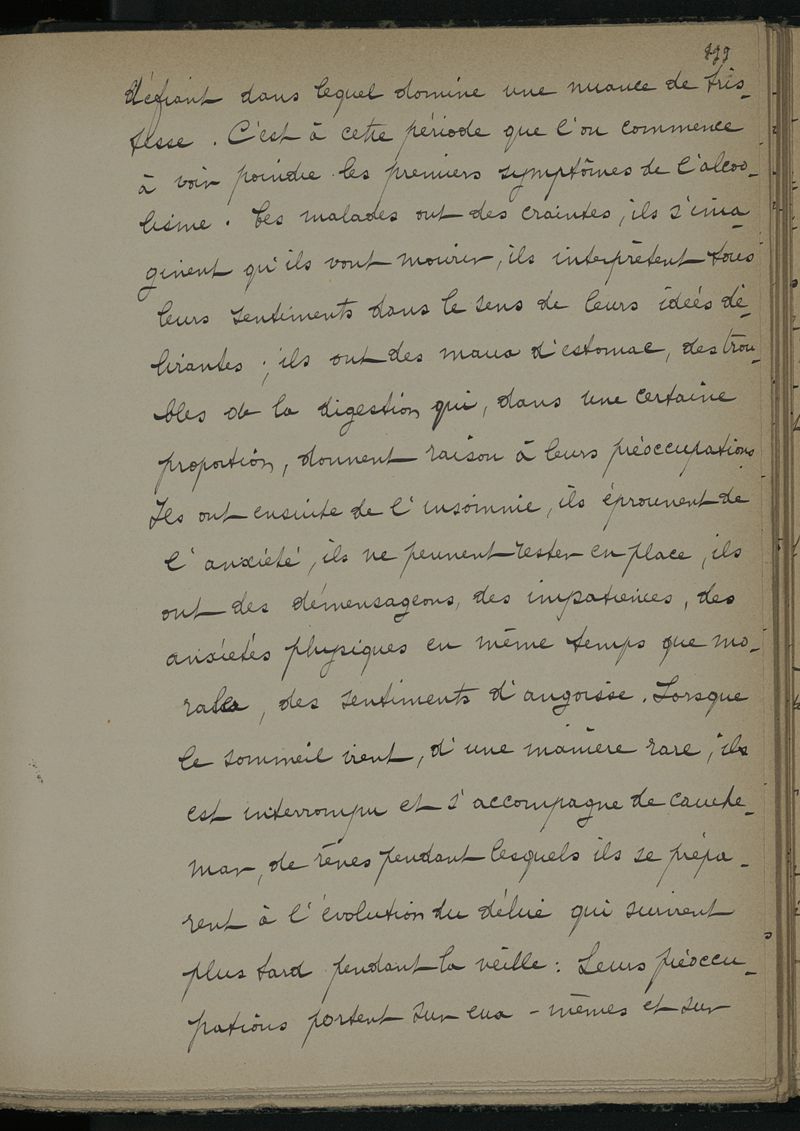 défiant dans lequel domine une nuance de tris-
tesse. C'est à cette période que l'on commence
à voir poindre les premiers symptômes de l'alcoo-
lisme. Les malades ont des craintes, ils s'ima-
ginent qu'ils vont mourir, ils interprètent tous
leurs sentiments dans le sens de leurs idées dé-
lirantes ; ils ont des maux d'estomac, des trou-
bles de la digestion qui, dans une certaine
proportion, donnent raison à leurs préoccupations
Ils ont ensuite de l'insomnie, ils éprouvent de
l'anxiété, ils ne peuvent rester en place, ils
ont des démensageons, des impatiences, des
anxiétés physiques en même temps que mo-
rales, des sentiments d'angoisse. Lorsque
le sommeil vient, d'une manière rare, ils
est interrompu et s'accompagne de cauche-
mar, de rêves pendant lesquels ils se prépa-
rent à l'évolution du délire qui survient
plus tard pendant la veille : Leurs préoccu-
pations portent sur eux-mêmes et sur